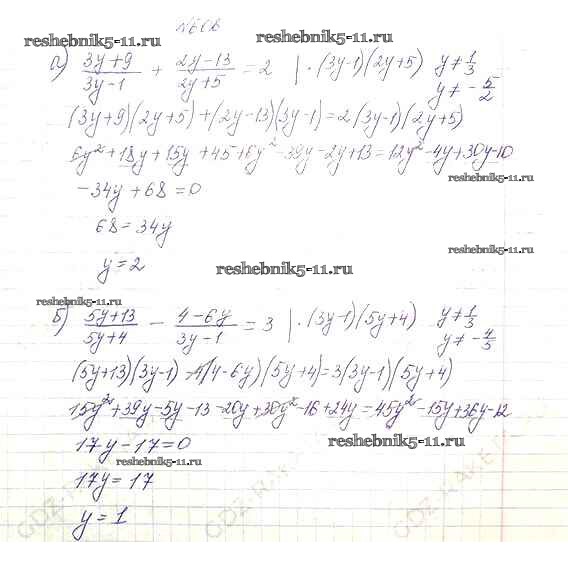 № 608
reshebnik5-11.ru reshebnik5-11.ru
а) (3y+9)/(3y-1) + (2y-13)/(2y+5) = 2 | · (3y-1)(2y+5) y ≠ 1/3
y ≠ -5/2
(3y+9)(2y+5)+(2y-13)(3y-1)=2(3y-1)(2y+5)
6y²+18y+15y+45+6y²-39y-2y+13=12y²-4y+30y-10
reshebnik5-11.ru
-34y+68=0
68=34y
reshebnik5-11.ru
y=2
reshebnik5-11.ru
reshebnik5-11.ru
б) (5y+13)/(5y+4) - (4-6y)/(3y-1) = 3 | · (3y-1)(5y+4) y ≠ 1/3
y ≠ -4/5
(5y+13)(3y-1)-(4-6y)(5y+4)=3(3y-1)(5y+4)
15y²+39y-5y-13-20y+30y²-16+24y=45y²-15y+36y-12
17y-17=0
reshebnik5-11.ru
reshebnik5-11.ru
17y=17
y=1